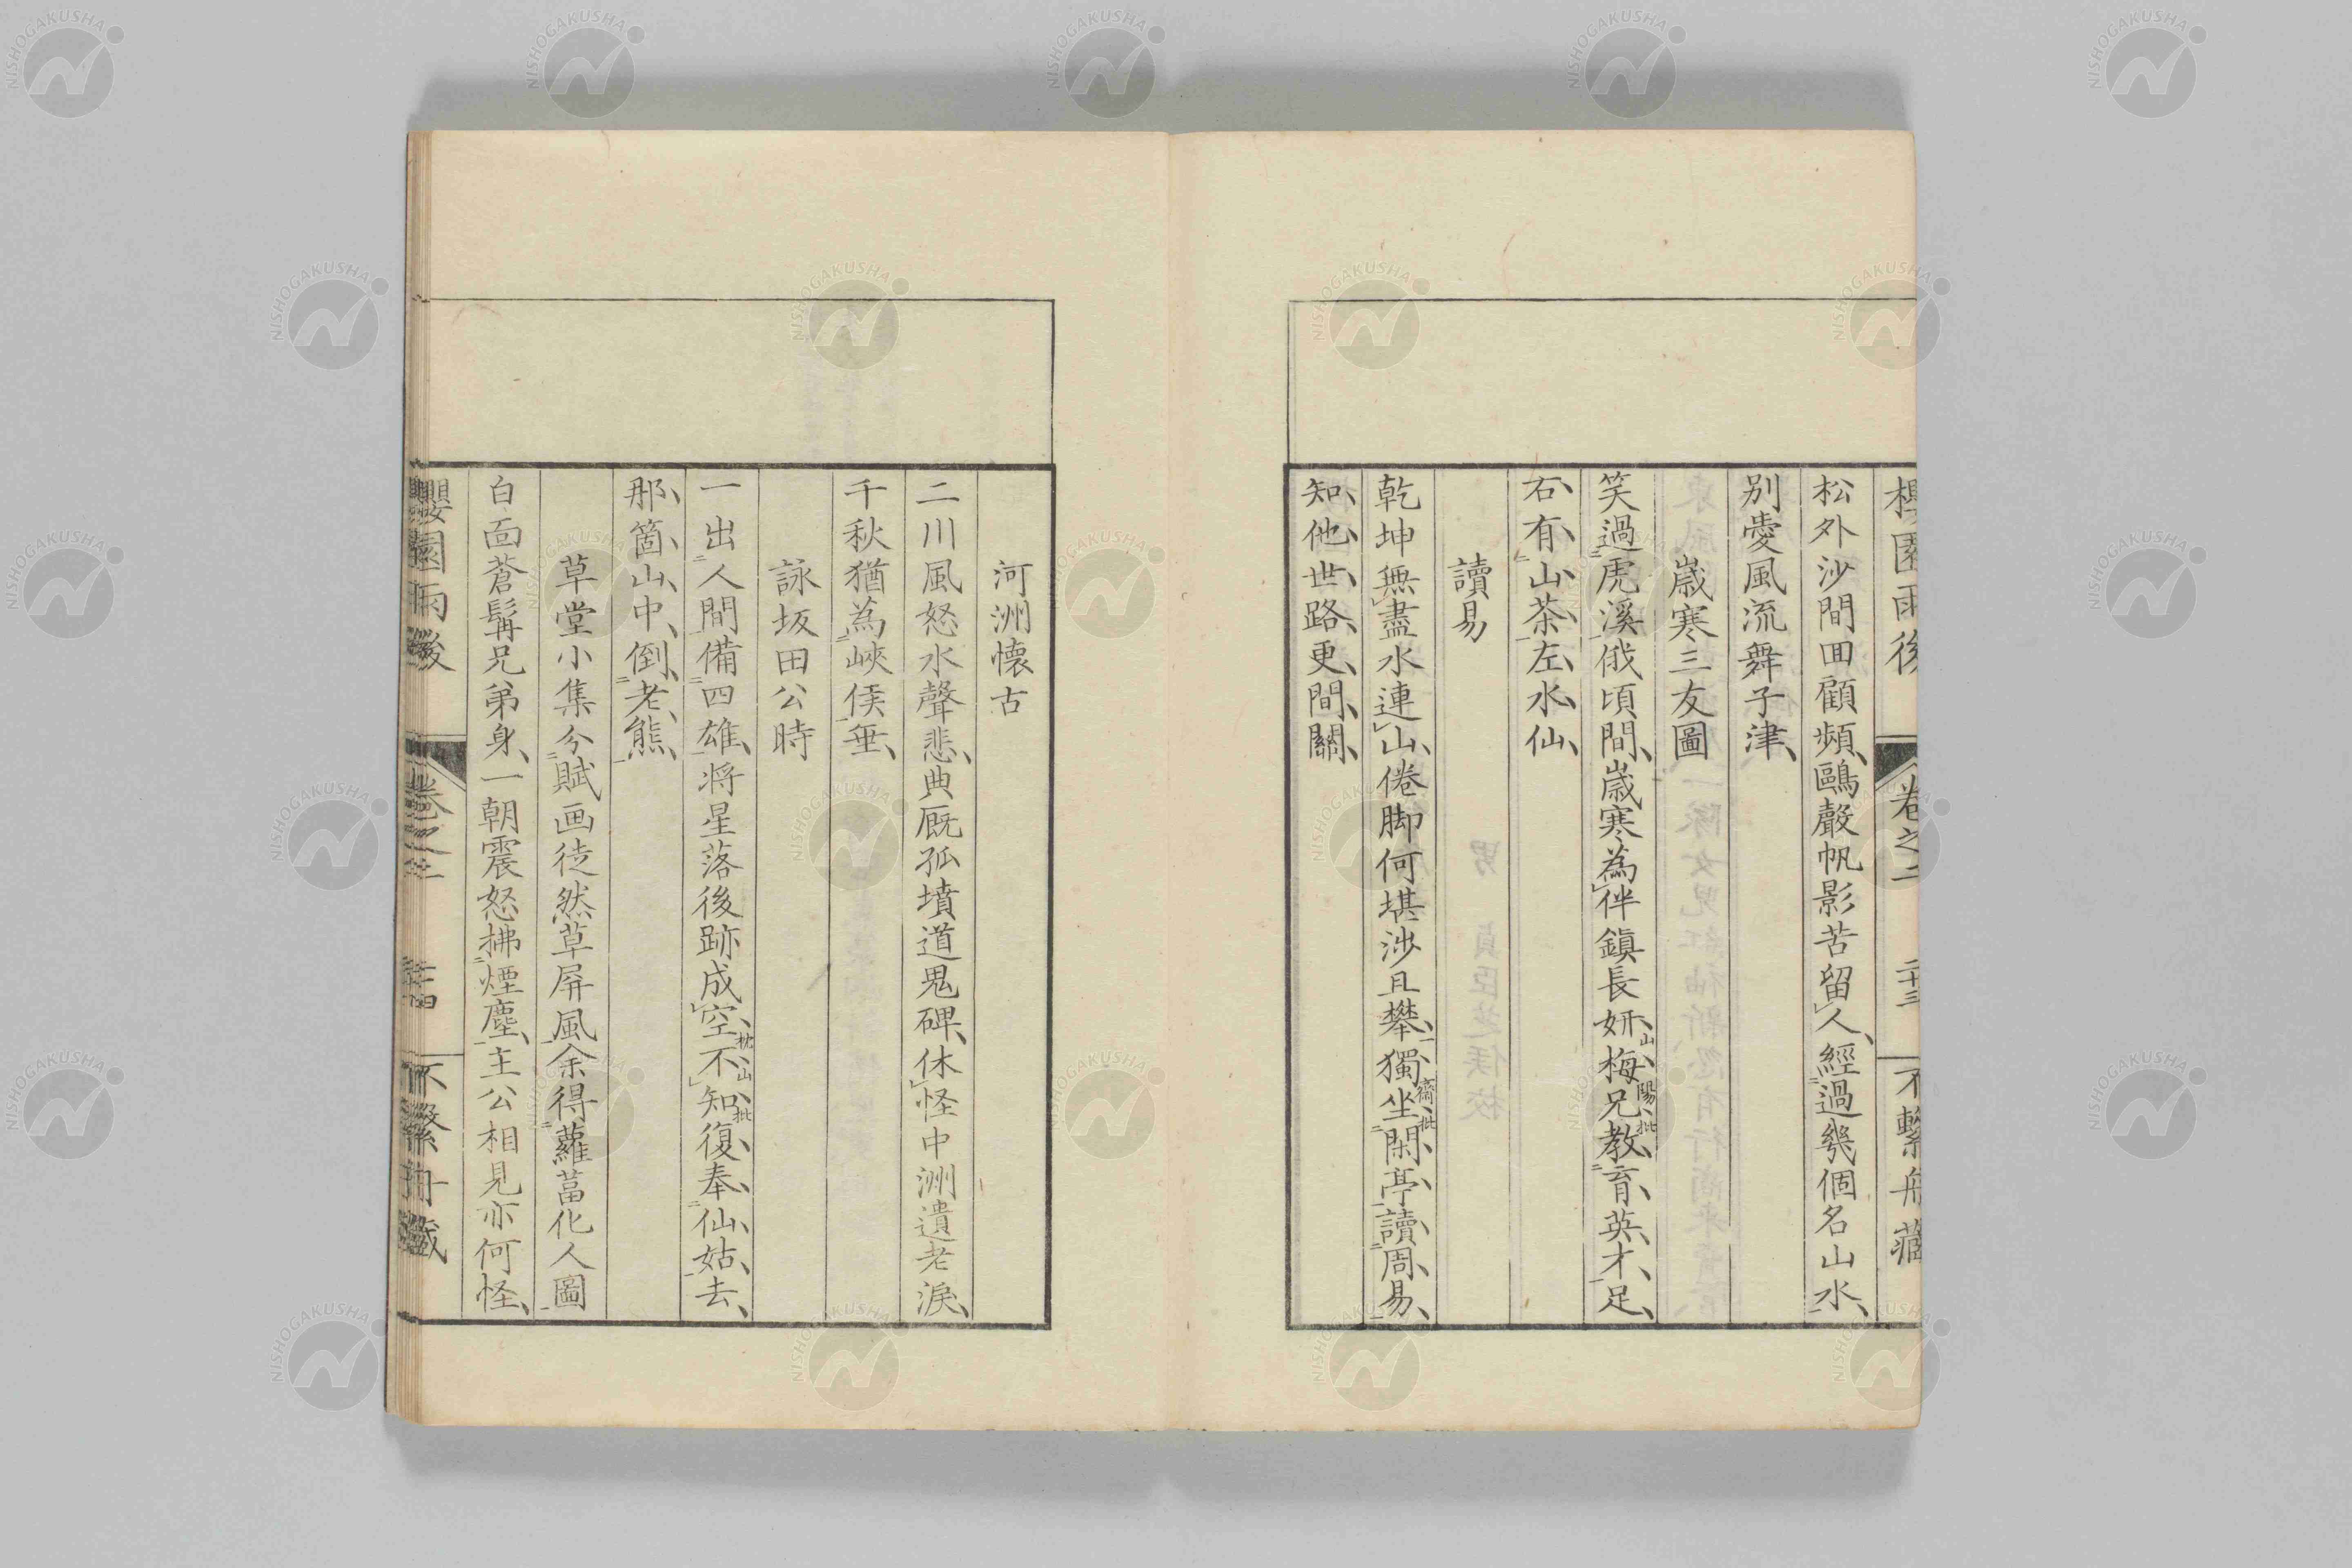 櫻園雨後 卷之二 二十三 不繫舟藏
松外沙間囬顧頻鷗聲帆影苦留人經過幾個名山水
别愛風流舞子津
歳寒三友圖
笑過虎溪俄頃間歳寒為伴鎮長妍梅兄教育英才足
山陽批
石有山茶左水仙
讀易
乾坤無盡水連山倦脚何堪涉且攀獨坐閑亭讀周易
齋批
知他世路更間關
河洲懐古
二川風怒水聲悲典厩孤墳道鬼碑休怪中洲遺老淚
千秋猶為峽侯垂
詠坂田公時
一出人間備四雄将星落後跡成空不知復奉仙姑去
枕山批
那箇山中倒老熊
草堂小集分賦画徒然草屏風余得蘿蔔化人圖
白面蒼髯兄弟身一朝震怒拂煙塵主公相見亦何怪
櫻園雨後 卷之二 二十四 不繫舟藏
NISHOGAKUSHA